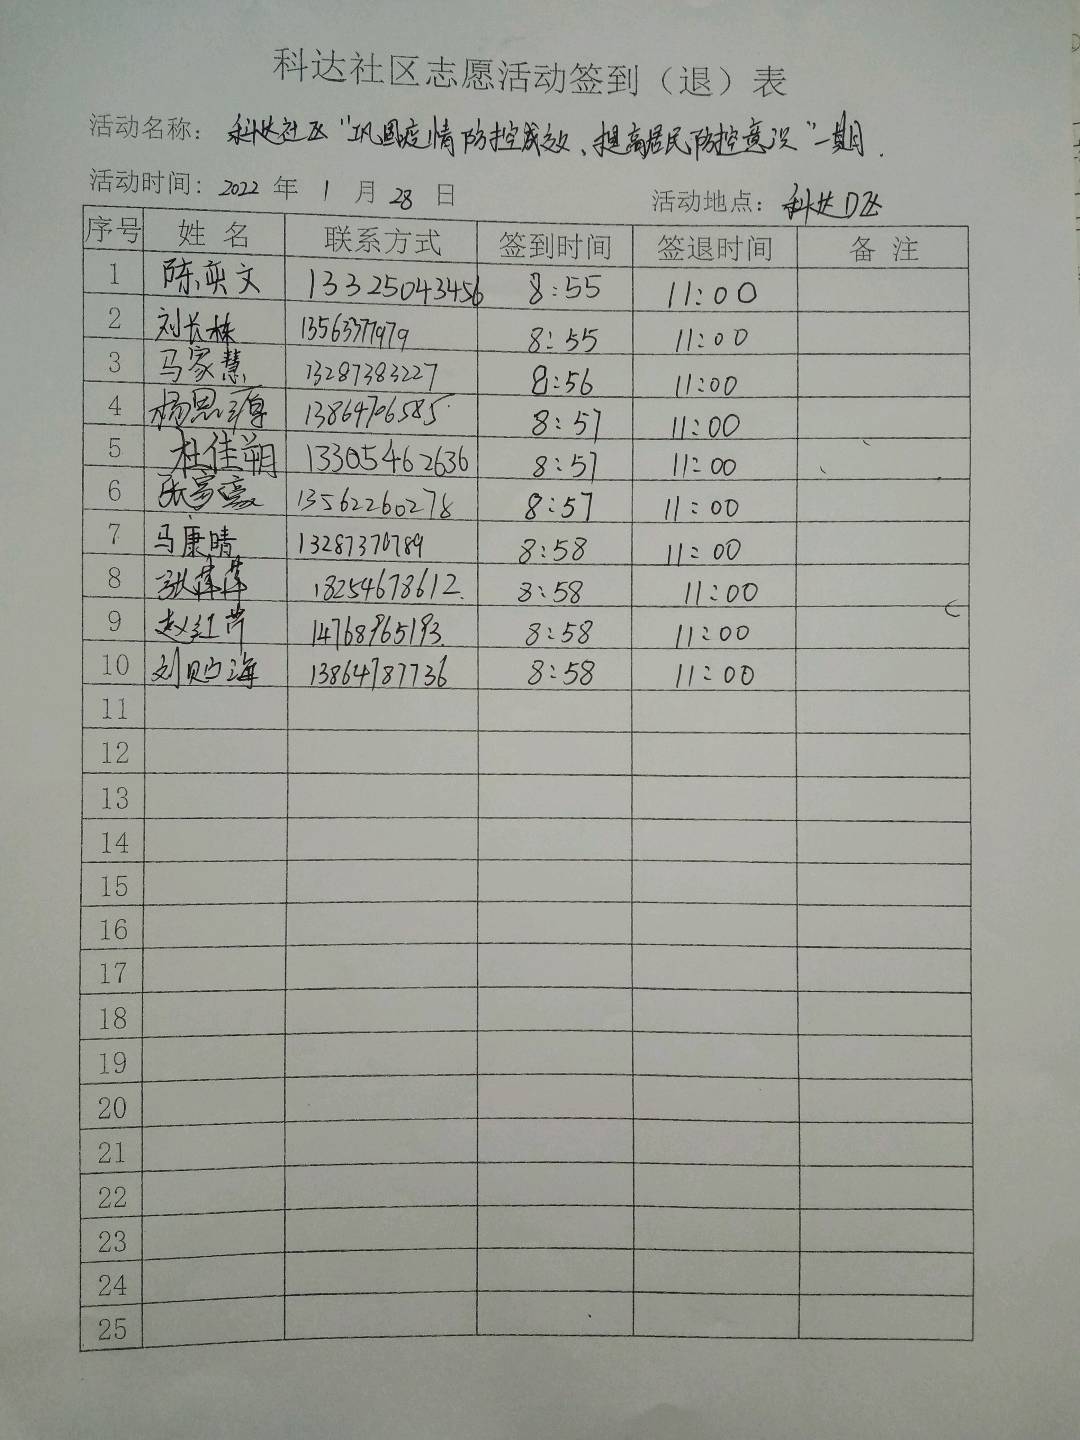 科达社区志愿活动签到（退）表
活动名称： 科达社区“巩固疫情防控成效、提高居民防控意识”一期.
活动时间：2022 年 1 月 28 日 活动地点：科达D区
序号 姓名 联系方式 签到时间 签退时间 备注
1 陈奕文 13325043456 8:55 11:00
2 刘长栋 13563377979 8:55 11:00
3 马家慧 13287383227 8:56 11:00
4 杨思 13864706585 8:57 11:00
5 杜佳朔 13305462636 8:57 11:00
6 13562260278 8:57 11:00
7 马康晴 13287370789 8:58 11:00
8 张萍萍 18254678612. 8:58 11:00
9 赵红芹 14768965193. 8:58 11:00
10 刘海 13864787736 8:58 11:00
11
12
13
14
15
16
17
18
19
20
21
22
23
24
25